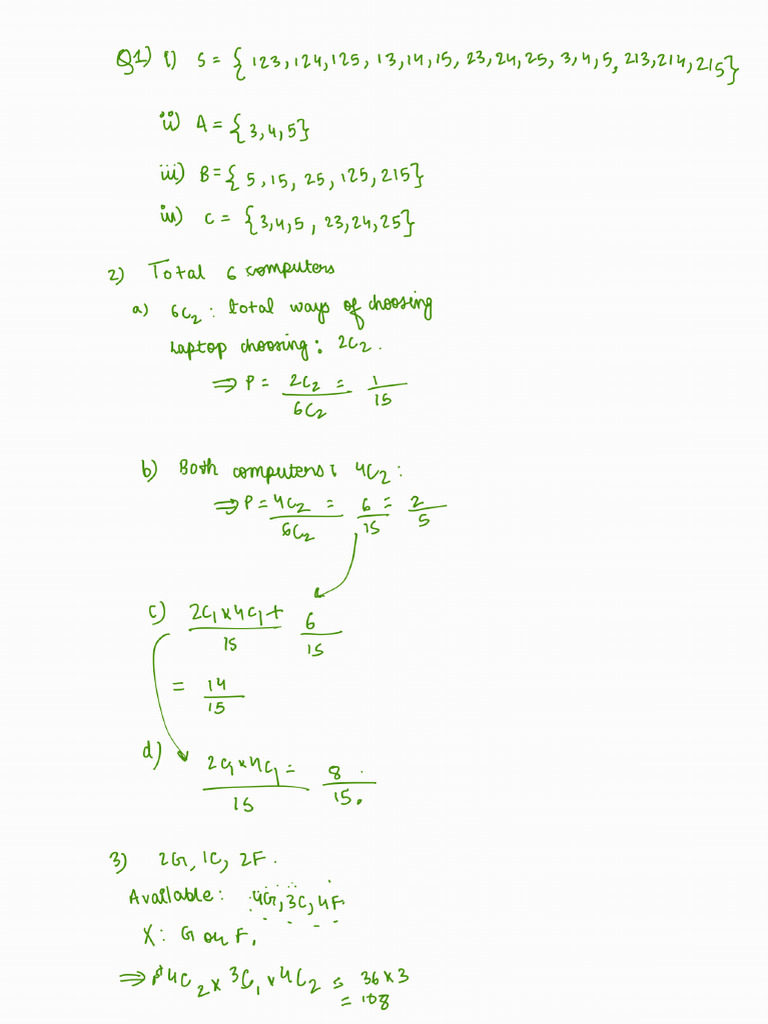 Q1) i) S = { 123, 124, 125, 13, 14, 15, 23, 24, 25, 3, 4, 5, 213, 214, 215}
ii) A = {3,4,5}
iii) B = { 5, 15, 25, 125, 215}
iv) C = {3,4,5, 23,24,25}
2) Total 6 computers
a) 6C₂ : total ways of choosing
Laptop choosing : 2C₂.
⇒ P = 2C₂/6C₂ = 1/15
b) Both computers : 4C₂ :
⇒ P = 4C₂/6C₂ = 6/15 = 2/5
c) 2C₁ x 4C₁/15 + 6/15
= 14/15
d) 2C₁ x 4C₁/15 = 8/15.
3) 2G, 1C, 2F.
Available : 4G, 3C, 4F
X : G or F,
⇒ 4C₂ x 3C₁ x 4C₂ = 36 x 3
= 108